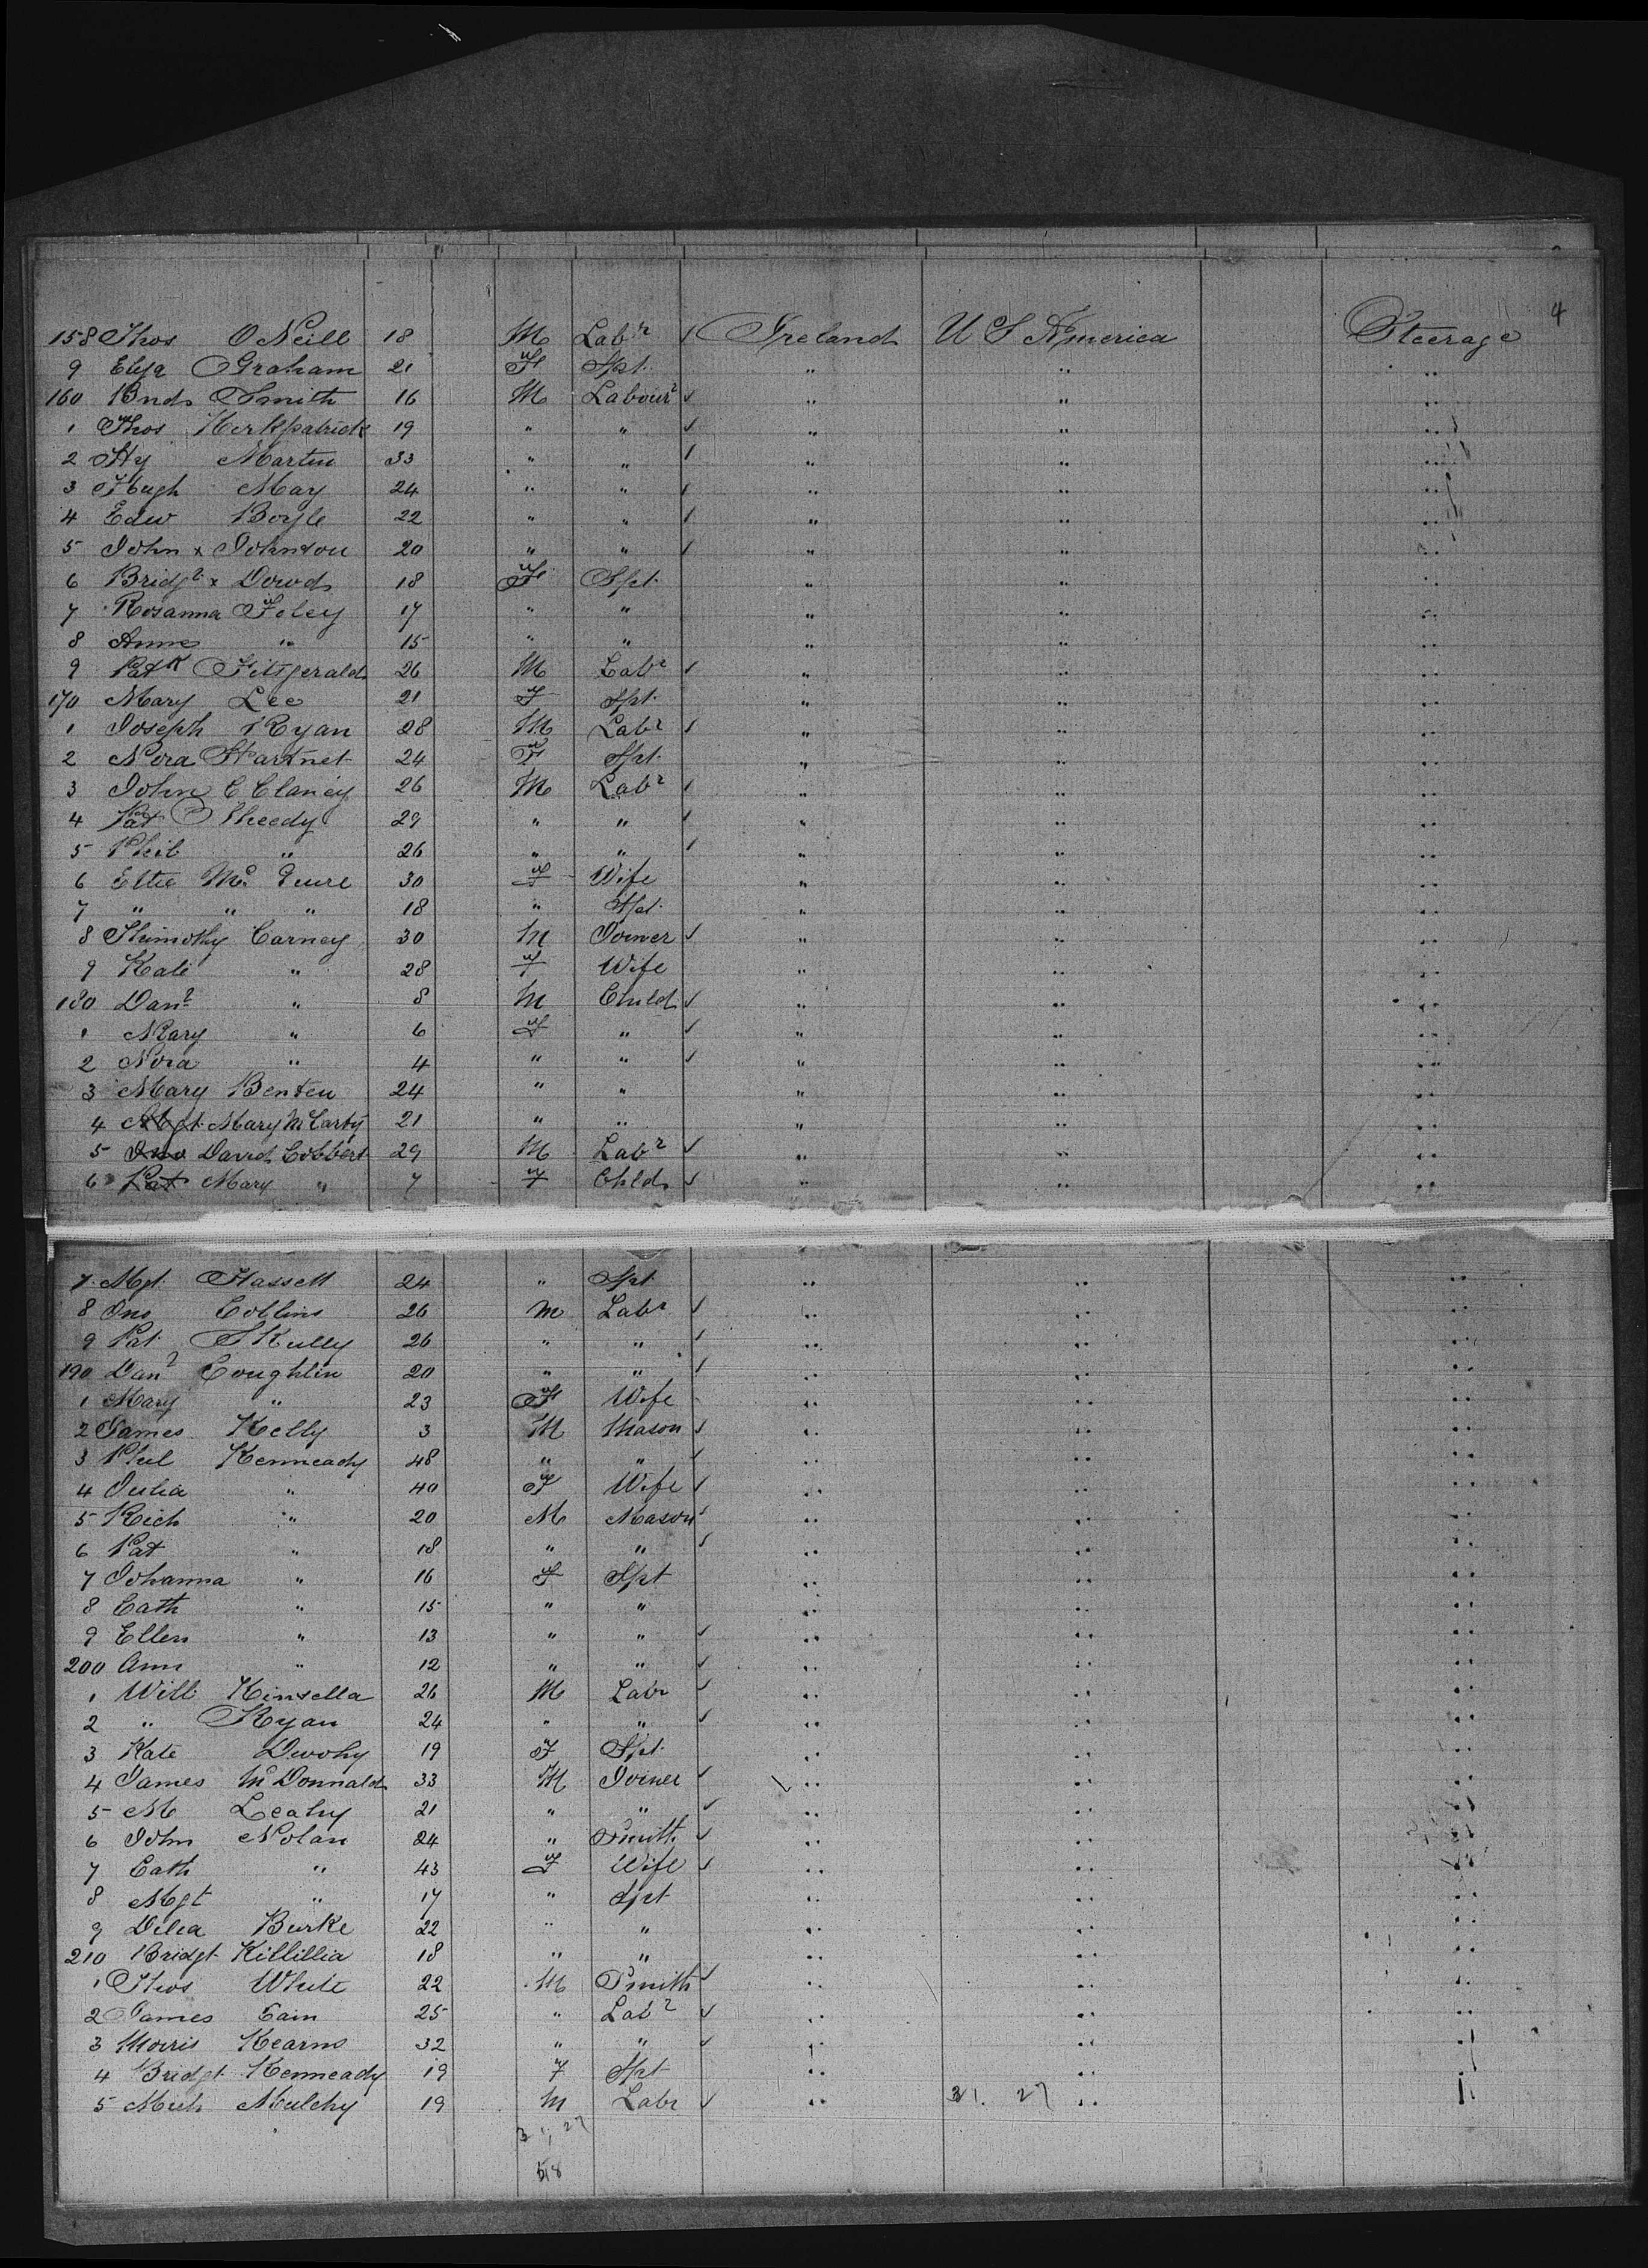 4
158 Thos O Neill 18 M Labr Ireland U S America Steerage
9 Eliza Graham 21 F Spt. " " "
160 Bnd Smith 16 M Labour " " "
1 Thos Kirkpatrick 19 " " " " "
2 Hy Martin 33 " " " " "
3 Hugh May 24 " " " " "
4 Edw Boyle 22 " " " " "
5 John x Johnston 20 " " " " "
6 Bridgt x Dowd 18 F Spt. " " "
7 Rosanna Foley 17 " " " " "
8 Anne " 15 " " " " "
9 Patk Fitzgerald 26 M Labr " " "
170 Mary Lee 21 F Spt. " " "
1 Joseph Ryan 28 M Labr " " "
2 Nora Hartnet 24 F Spt. " " "
3 John C Clancy 26 M Labr " " "
4 Pat Sheedy 29 " " " " "
5 Phil " 26 " " " " "
6 Ettie Mc 30 F Wife " " "
7 " " " 18 " Spt. " " "
8 Thimothy Carney 30 M Joiner " " "
9 Kate " 28 F Wife " " "
180 Danl " 8 M Child " " "
1 Mary " 6 F " " " "
2 Nora " 4 " " " " "
3 Mary Benten 24 " " " " "
4 Mgt. Mary McCarty 21 " " " " "
5 Jno David Cobbert 29 M Labr " " "
6 Pat Mary " 7 F Chld " " "
7 Mgt. Hassett 24 " Spt. " " "
8 Jno Collins 26 M Labr " " "
9 Pat Skully 26 " " " " "
190 Danl Coughlin 20 " " " " "
1 Mary " 23 F Wife " " "
2 James Kelly 3 M Mason " " "
3 Phil Kenneady 48 " " " " "
4 Julia " 40 F Wife " " "
5 Rich " 20 M Mason " " "
6 Pat " 18 " " " " "
7 Johanna " 16 F Spt " " "
8 Cath " 15 " " " " "
9 Ellen " 13 " " " " "
200 Ann " 12 " " " " "
1 Will Kinsella 26 M Labr " " "
2 " Ryan 24 " " " " "
3 Kate Dwohy 19 F Spt. " " "
4 James McDonnald 33 M Joiner " " "
5 M Leahy 21 " " " " "
6 John Nolan 24 " Smith " " "
7 Cath " 43 F Wife " " "
8 Mgt " 17 " Spt " " "
9 Delia Burke 22 " " " " "
210 Bridgt Killillia 18 " " " " "
1 Thos White 22 M Smith " " "
2 James Cain 25 " Labr " " "
3 Morris Kearns 32 " " " " "
4 Bridgt. Kenneady 19 F Spt " " "
5 Mich Mulchy 19 M Labr " 31. 27 " "
31, 27
58